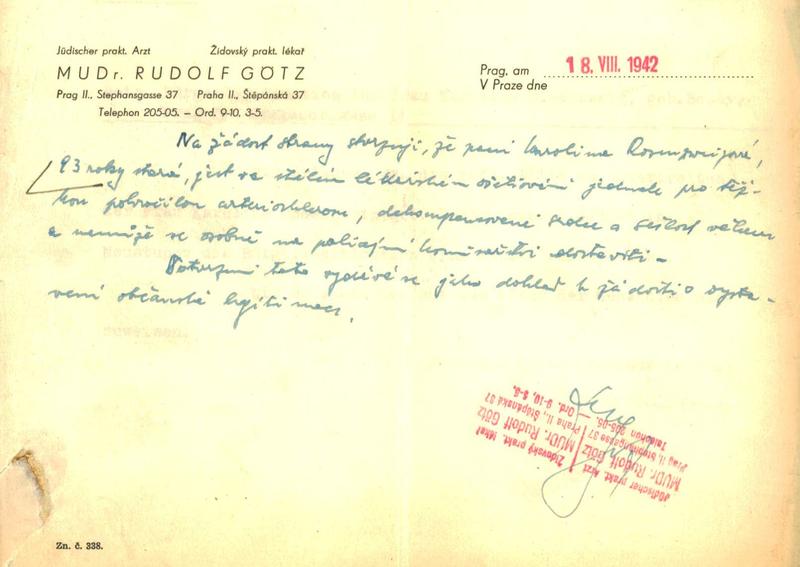 Jüdischer prakt. Arzt Židovský prakt. lékař
MUDr. RUDOLF GÖTZ
Prag II., Stephansgasse 37 Praha II., Štěpánská 37
Telephon 205-05. – Ord. 9-10, 3-5.
Prag, am
V Praze dne
18. VIII. 1942
Na žádost strany stvrzuji, že paní Karolina Rosenzweigová,
93 roky stará, jest ve stálém lékařském ošetřování jednak pro těž-
kou pokročilou arteriosklerosu, dekompensované srdce a sešlost věkem
a nemůže se osobně na policejní komisařství dostaviti –
Potvrzení toto vydává se jako doklad k žádosti o vysta-
vení občanské legitimace.
Jüdischer prakt. Arzt
MUDr. Rudolf Götz
Prag II., Stephansgasse 37
Telephon 205-05.
Židovský prakt. lékař
MUDr. Rudolf Götz
Praha II., Štěpánská 37
Ord. 9-10, 3-5
Zn. č. 338.